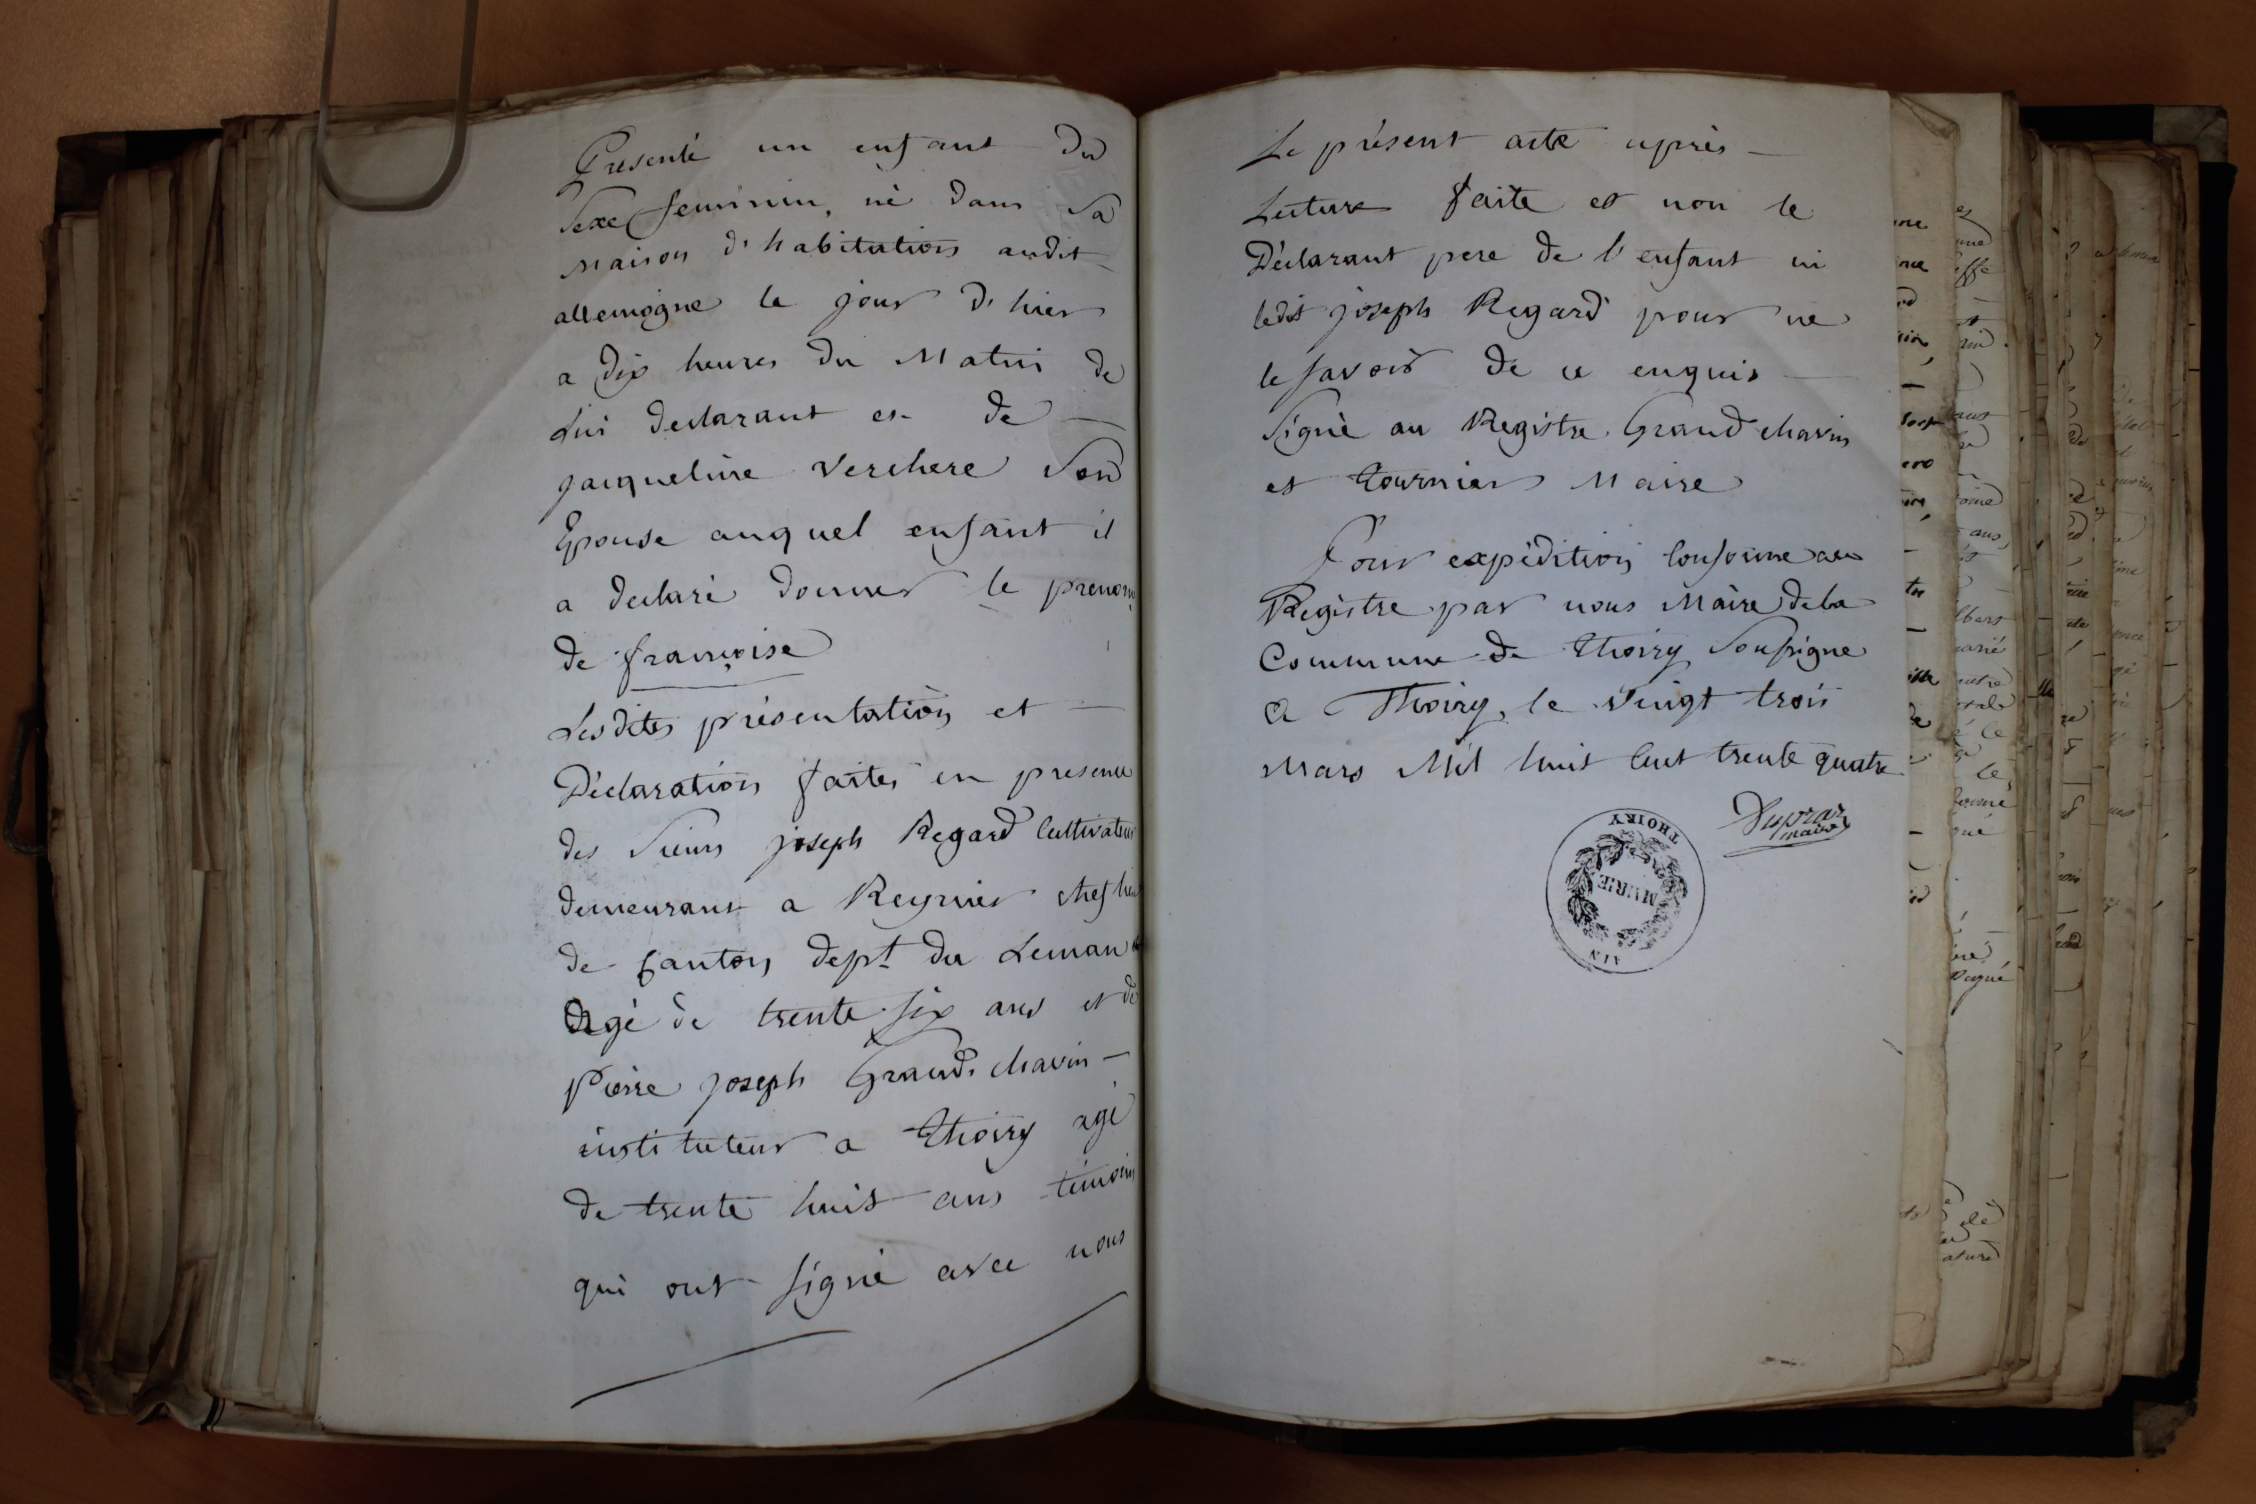 Présenté un enfant du
Sexe feminin, né dans Sa
Maison d'habitation audit
allemogne le jour d'hier
a dix heures du Matin de
Lui declarant et de
jacqueline Verchere Son
Epouse auquel enfant il
a declaré donner le prenom
de françoise
Lesdites présentation et
Déclaration faites en presence
des Sieurs joseph Regard Cultivateur
demeurant a Reynier chef lieu
de Canton dept. du Leman
Agé de trente six ans et de
Pierre joseph Grand-chavin
instituteur a Thoiry agé
de trente huit ans témoins
qui ont signé avec nous
Le présent acte après
Lecture faite et non le
Déclarant pere de l'enfant ni
ledit joseph Regard pour ne
le savoir de ce enquis
Signé au Registre Grand chavin
et Tournier Maire
Pour expédition Conforme au
Registre par nous Maire de la
Commune de Thoiry Soussigné
A Thoiry, le vingt trois
Mars Mil huit Cent trente quatre
maire
THOIRY
MAIRIE
AIN